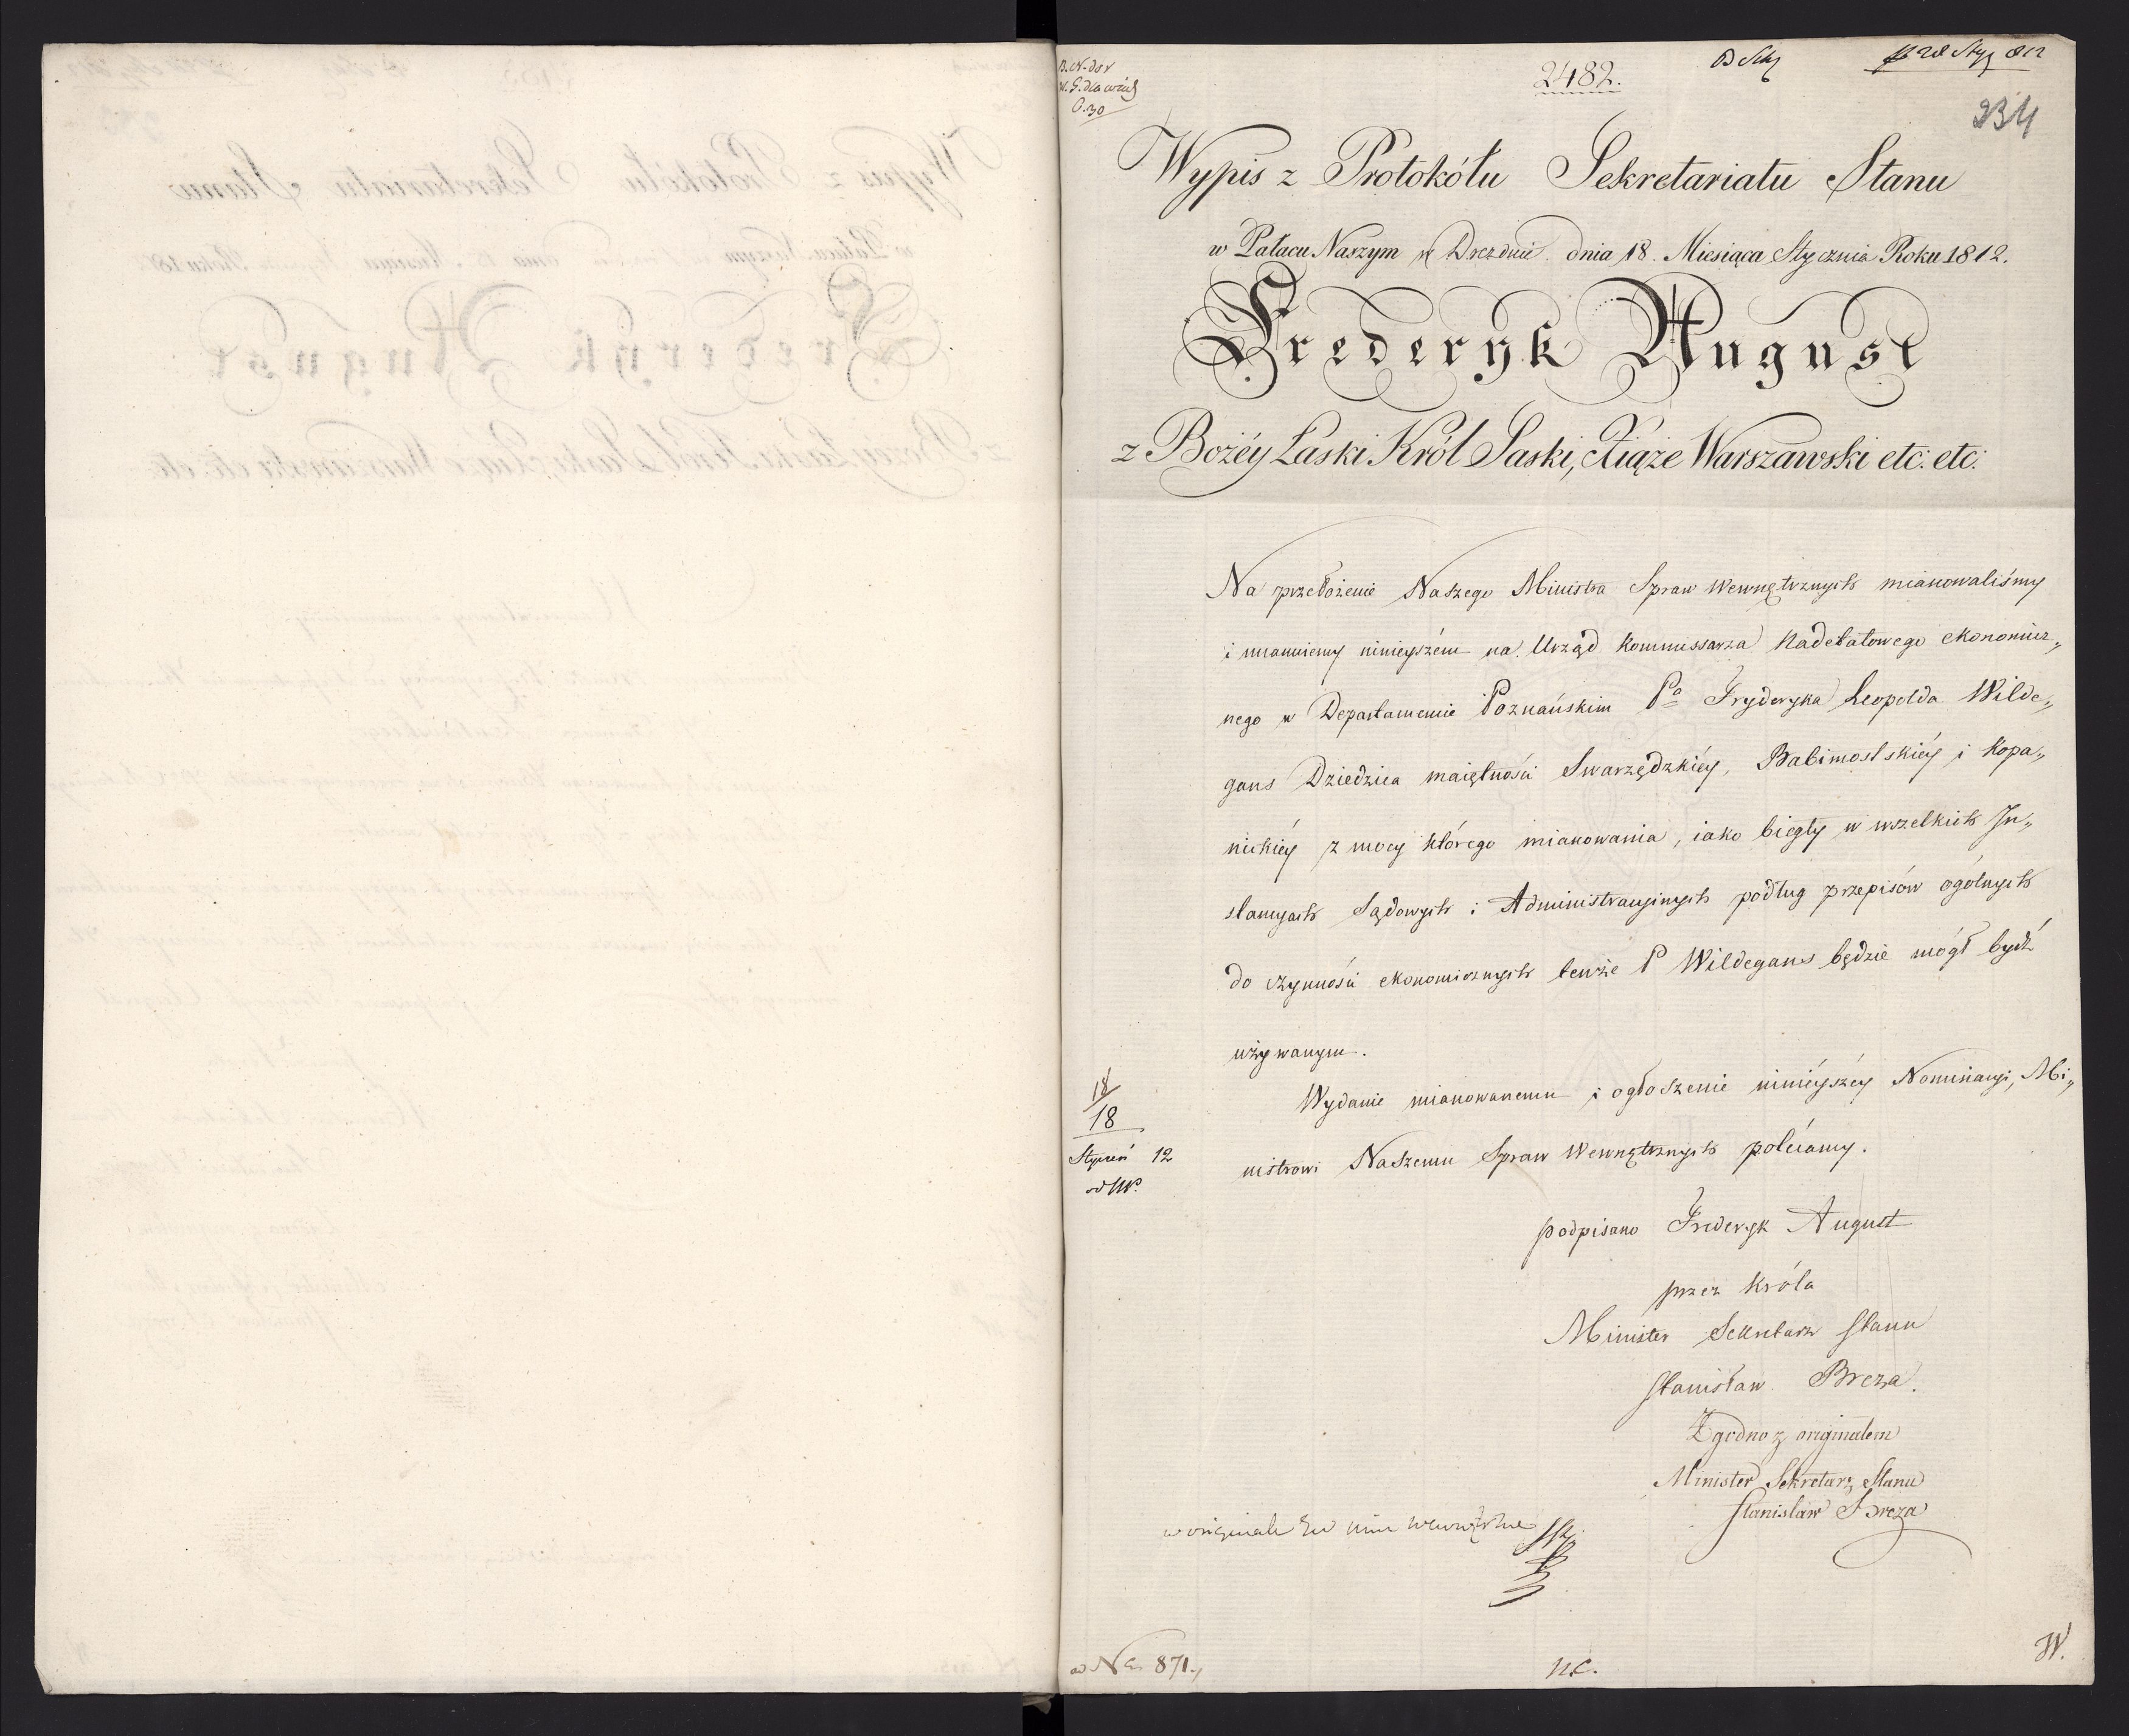 2482.
234
Wypis z Protokółu Sekretariatu Stanu
w Pałacu Naszym w Dreznie dnia 18. Miesiąca Stycznia Roku 1812.
Frederyk August
z Bożéy Łaski Król Saski, Xiąże Warszawski etc: etc:
Na przełożenie Naszego Ministra Spraw Wewnętrznych mianowaliśmy
i mianuiemy ninieyszém na Urząd Kommissarza Nadetatowego ekonomicz„
nego w Departamencie Poznańskim Pa Fryderyka Leopolda Wilde„
gans Dziedzica maiętności Swarzędzkiéy, Babimostskiéy i Kopa„
nickiéy z mocy którego mianowania, iako biegły w wszelkich In„
stancyach Sądowych i Administracyinych podług przepisów ogólnych
do czynności ekonomicznych tenże P Wildegans będzie mógł bydź
używanym.
Wydanie mianowanemu i ogłoszenie ninieyszéy Nominacyi, Mi„
nistrowi Naszemu Spraw Wewnętrznych polecamy.
18
18
Styczeń 12
podpisano Frederyk August
przez Króla
Minister Sekretarz Stanu
Stanisław Breza.
Zgodno z originałem
Minister Sekretarz Stanu
Stanisław Breza
w originale
ad No 871.
n.c.
W.